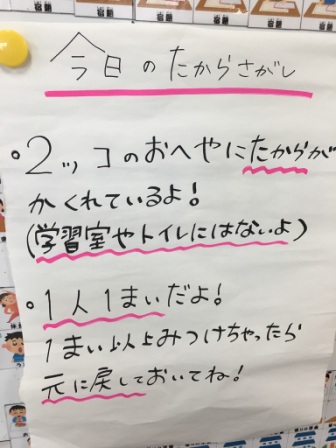 今日のたからさがし
•2ッコのおへやにたからが
かくれているよ!
(学習室やトイレにはないよ)
•1人1まいだよ!
1まい以上みつけちゃったら
元に戻しておいてね!